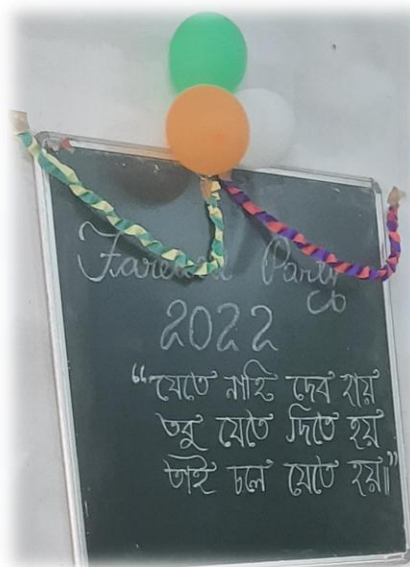 Farewell Party
2022
“যেতে নাহি দেব হায়
তবু যেতে দিতে হয়
তাই চলে যেতে হয়॥”